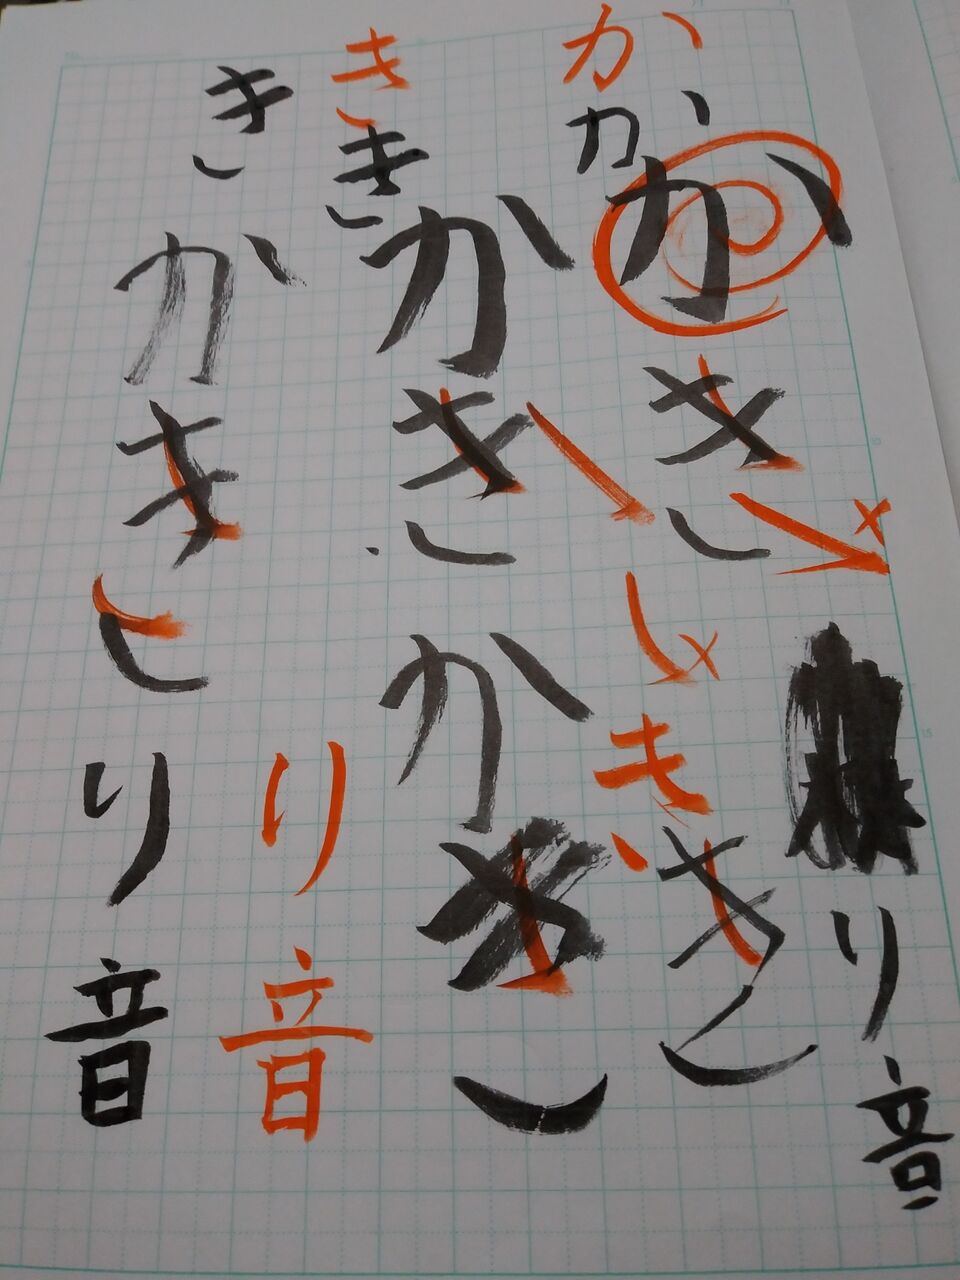 り音
かかかききき
ききかきかき
り音
きかきり音